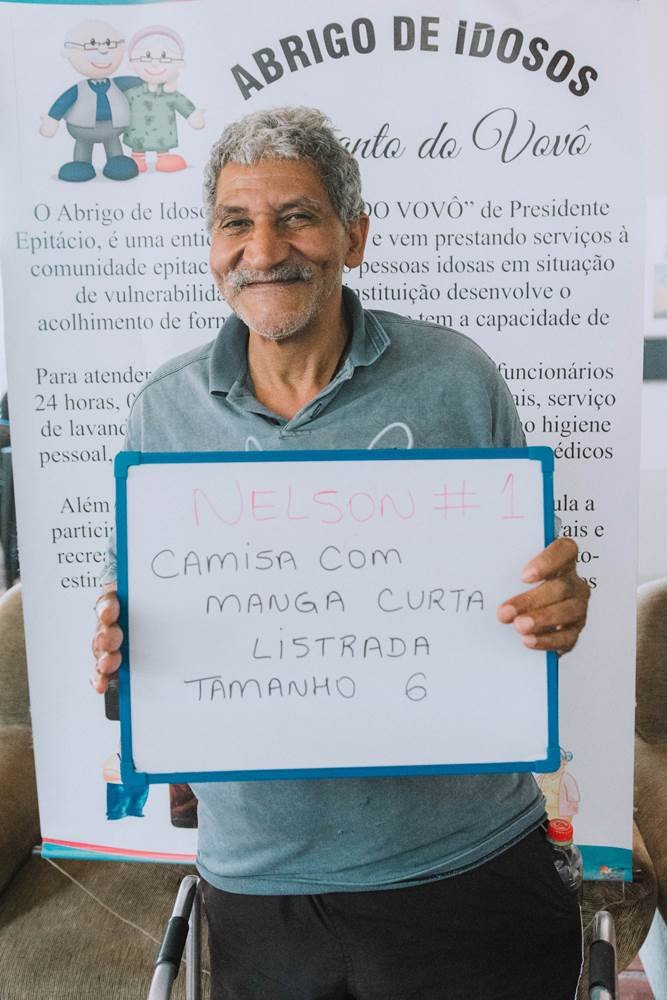 ABRIGO DE IDOSOS
anto do Vovô
O Abrigo de Idoso DO VOVÔ” de Presidente
Epitácio, é uma enti e vem prestando serviços à
comunidade epitac pessoas idosas em situação
de vulnerabilida stituição desenvolve o
acolhimento de for tem a capacidade de
Para atender funcionários
24 horas, ais, serviço
de lavand o higiene
pessoal, édicos
Além ula a
partici rais e
recre o-
estin os
NELSON # 1
CAMISA COM
MANGA CURTA
LISTRADA
TAMANHO 6